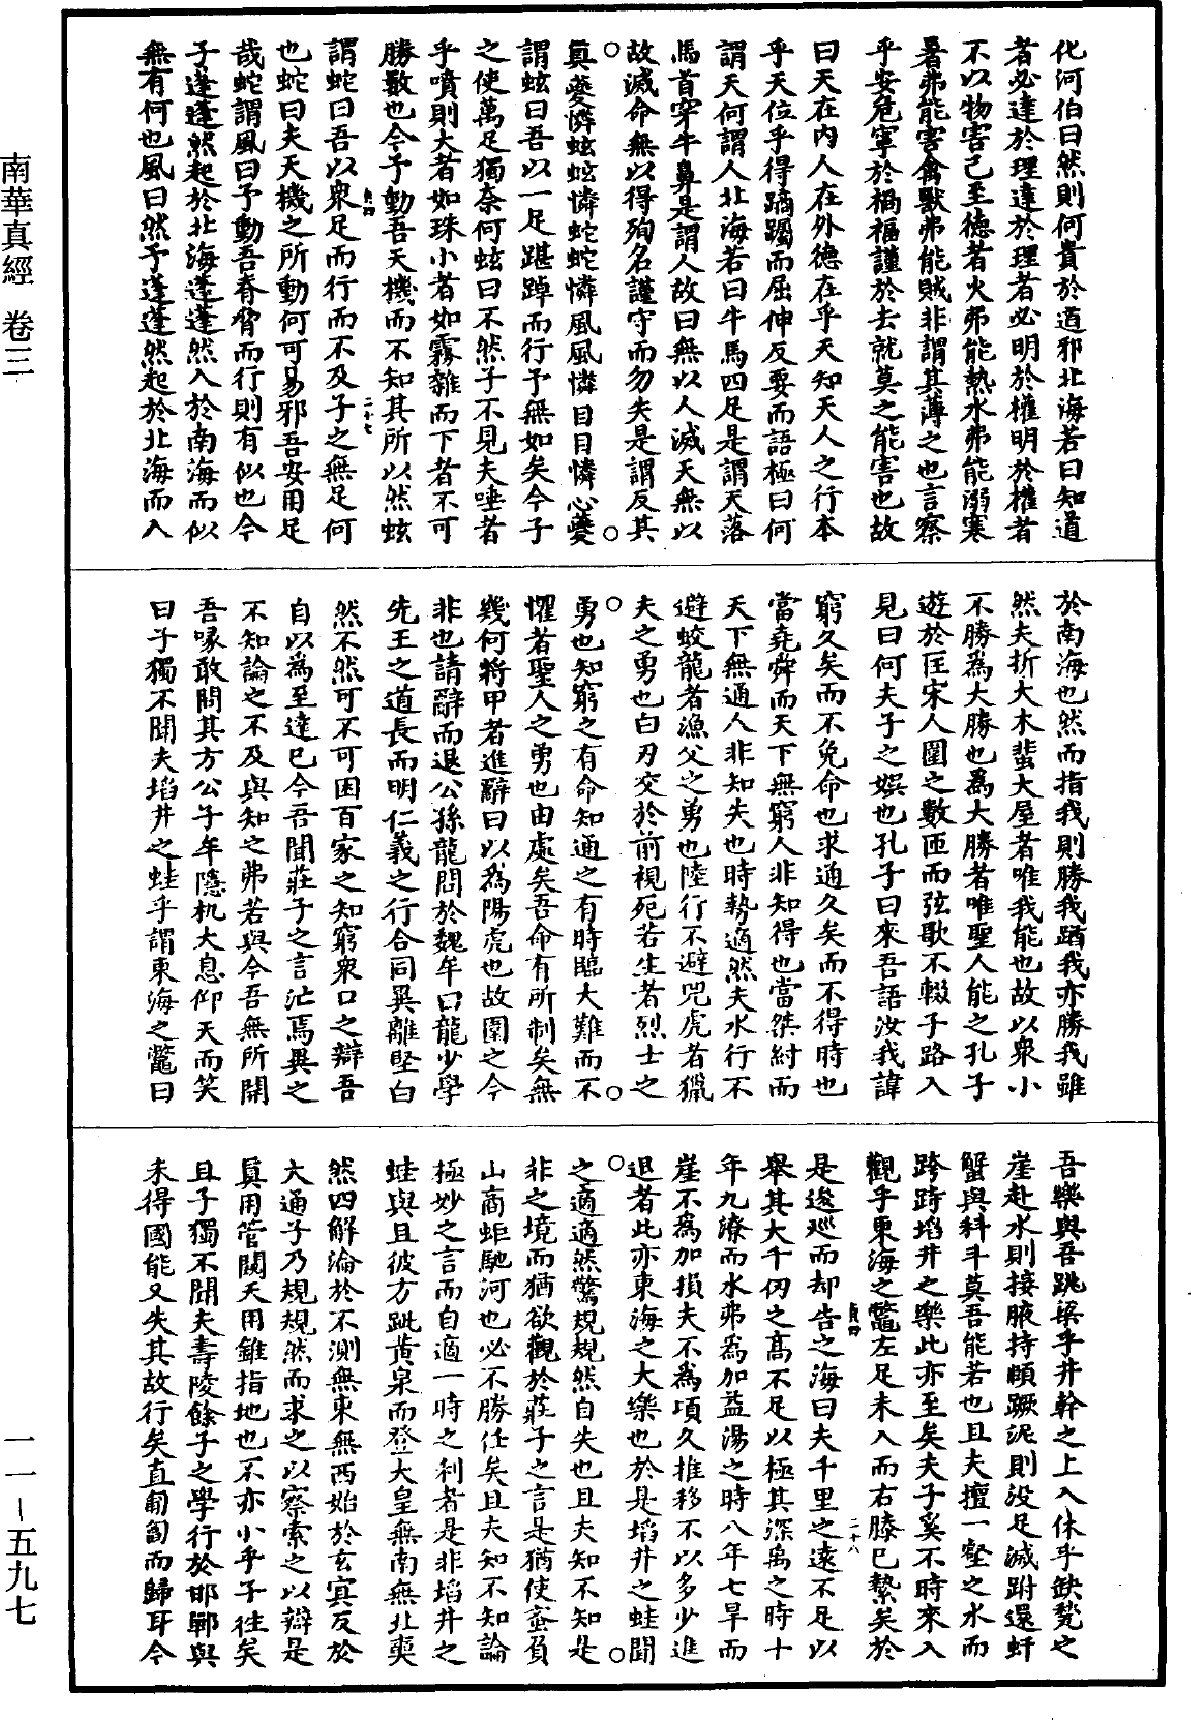 南華真經 卷三
一一－五九七
化河伯曰然則何貴於道邪北海若曰知道
者必達於理達於理者必明於權明於權者
不以物害己至德者火弗能熱水弗能溺寒
暑弗能害禽獸弗能賊非謂其薄之也言察
乎安危寧於禍福謹於去就莫之能害也故
曰天在內人在外德在乎天知天人之行本
乎天位乎得蹢䠱而屈伸反要而語極曰何
謂天何謂人北海若曰牛馬四足是謂天落
馬首穿牛鼻是謂人故曰無以人滅天無以
故滅命無以得殉名謹守而勿失是謂反其
真夔憐蚿蚿憐蛇蛇憐風風憐目目憐心夔
謂蚿曰吾以一足踸踔而行予無如矣今子
之使萬足獨奈何蚿曰不然子不見夫唾者
乎噴則大者如珠小者如霧雜而下者不可
勝數也今予動吾天機而不知其所以然蚿
貞四
二十七
謂蛇曰吾以衆足而行而不及子之無足何
也蛇曰夫天機之所動何可易邪吾安用足
哉蛇謂風曰予動吾脊脅而行則有似也今
子蓬蓬然起於北海蓬蓬然入於南海而似
無有何也風曰然予蓬蓬然起於北海而入
於南海也然而指我則勝我䠓我亦勝我雖
然夫折大木蜚大屋者唯我能也故以衆小
不勝為大勝也為大勝者唯聖人能之孔子
遊於匡宋人圍之數匝而弦歌不輟子路入
見曰何夫子之娛也孔子曰來吾語汝我諱
窮久矣而不免命也求通久矣而不得時也
當堯舜而天下無窮人非知得也當桀紂而
天下無通人非知失也時勢適然夫水行不
避蛟龍者漁父之勇也陸行不避兕虎者獵
夫之勇也白刃交於前視死若生者烈士之
勇也知窮之有命知通之有時臨大難而不
懼者聖人之勇也由處矣吾命有所制矣無
幾何將甲者進辭曰以為陽虎也故圍之今
非也請辭而退公孫龍問於魏牟曰龍少學
先王之道長而明仁義之行合同異離堅白
然不然可不可困百家之知窮衆口之辯吾
自以為至達已今吾聞莊子之言汒焉異之
不知論之不及與知之弗若與今吾無所開
吾喙敢問其方公子牟隱机大息仰天而笑
曰子獨不聞夫埳井之蛙乎謂東海之鼈曰
吾樂與吾跳梁乎井幹之上入休乎缺甃之
崖赴水則接腋持頤蹶泥則沒足滅跗還虷
蟹與科斗莫吾能若也且夫擅一壑之水而
跨跱埳井之樂此亦至矣夫子奚不時來入
觀乎東海之鼈左足未入而右膝已縶矣於
貞四
二十八
是逡巡而却告之海曰夫千里之遠不足以
舉其大千仞之高不足以極其深禹之時十
年九潦而水弗為加益湯之時八年七旱而
崖不為加損夫不為頃久推移不以多少進
退者此亦東海之大樂也於是埳井之蛙聞
之適適然驚規規然自失也且夫知不知是
非之境而猶欲觀於莊子之言是猶使蚉負
山商蚷馳河也必不勝任矣且夫知不知論
極妙之言而自適一時之利者是非埳井之
蛙與且彼方跐黃泉而登大皇無南無北奭
然四解淪於不測無東無西始於玄冥反於
大通子乃規規然而求之以察索之以辯是
直用管闚天用錐指地也不亦小乎子往矣
且子獨不聞夫壽陵餘子之學行於邯鄲與
未得國能又失其故行矣直匍匐而歸耳今